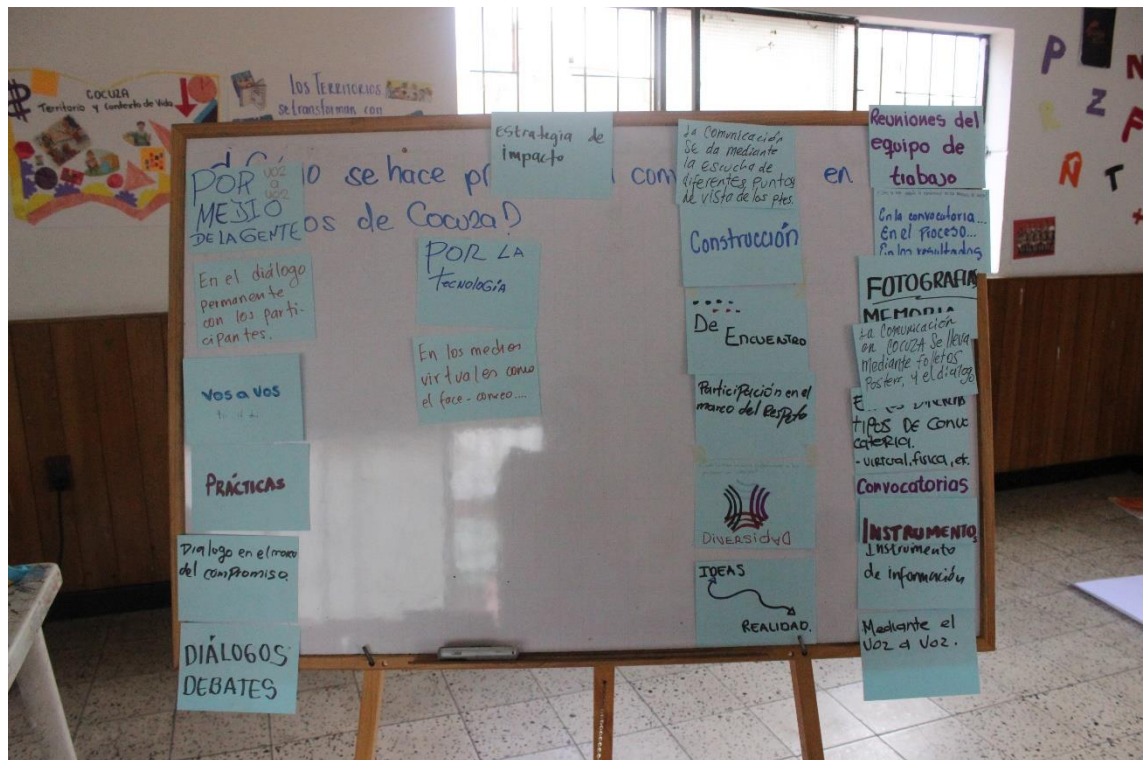 COCUZA
Territorio y Contexto de Vida
los TERRITORIOS
se transforman con
P
N
Z
Ñ
T
se hace
en
os de Cocuza?
POR voz
a
voz
MEDIO
DE LA GENTE
En el diálogo
permanente
con los parti-
cipantes.
Vos a Vos
PRÁCTICAS
Dialogo en el marco
del compromiso.
DIÁLOGOS
DEBATES
EStrategia de
impacto
POR LA
TECNOLOGÍA
En los medios
virtuales como
el face - correo....
La Comunicación
Se da mediante
la Escucha de
diferentes puntos
de vista de los ptes.
Construcción
De ENCUENTRO
Participación en el
marco del Respeto
DIVERSIdAD
IDEAS
REALIDAD.
Reuniones del
equipo de
trabajo
En la convocatoria...
En el Proceso...
En los resultados
FOTOGRAFIAS
MEMORIA
La Comunicación
en COCUZA Se lleva
mediante folletos
Posters, y el dialogo
TIPOS DE CONVO
CATORIA.
- VIRTUAL, fisica, etc.
Convocatorias
INSTRUMENTO
Instrumento
de información
Mediante el
Voz a Voz.